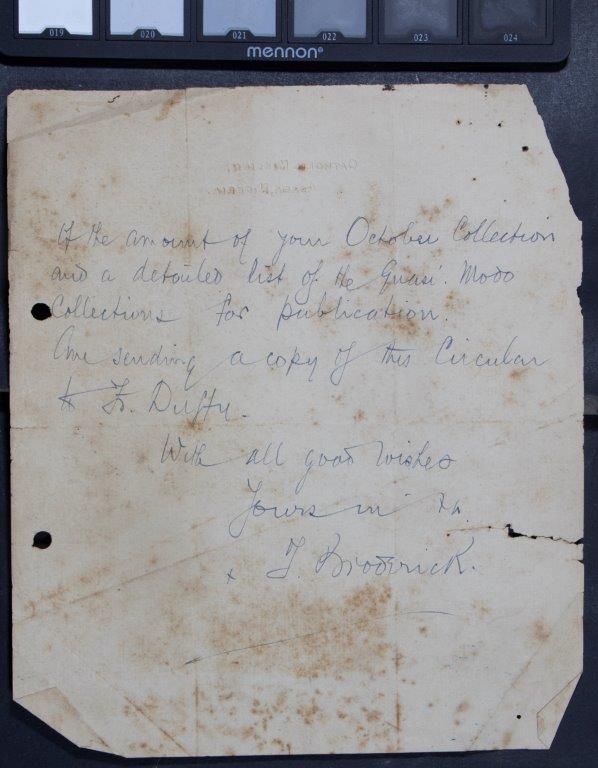 019 020 021 022 023 024
mennon®
If the amount of your October Collection
and a detailed list of the Quasi. Modo
Collections for publication.
Am sending a copy of this Circular
to Fr. Duffy.
With all good wishes
Yours in
+ T. Broderick.